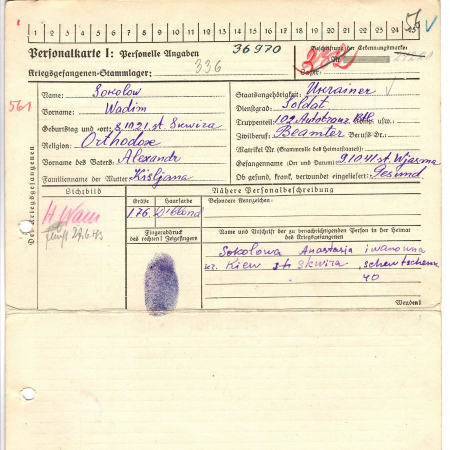 1 2 3 4 5 6 7 8 9 10 11 12 13 14 15 16 17 18 19 20 21 22 23 24 25
Personalkarte I: Personelle Angaben
36970
Beschriftung der Erkennungsmarke
Kriegsgefangenen-Stammlager:
336
Nr.
Lager:
561
Des Kriegsgefangenen
Name: Sokolow
Staatsangehörigkeit: Ukrainer
Vorname: Wadim
Dienstgrad: Soldat
Geburtstag und -ort: 8.10.21. st. Skwira
Truppenteil: 102 Autotranz. Komp. usw.
Religion: Orthodoxe
Zivilberuf: Beamter Berufs-Gr.
Vorname des Vaters: Alexandr
Matrikel Nr. (Stammrolle des Heimatstaates)
Gefangennahme (Ort und Datum) 91041 st. Wjasma
Familienname der Mutter: Kisljana
Ob gesund, krank, verwundet eingeliefert: Gesund
Lichtbild
Nähere Personalbeschreibung
Größe
Haarfarbe
Besondere Kennzeichen:
176.
D/blond
29.6.43
Fingerabdruck
des rechten! Zeigefingers
Name und Anschrift der zu benachrichtigenden Person in der Heimat
des Kriegsgefangenen
Sokolowa Anastasia iwanowna
Kiew st skwira,
40
Wenden!